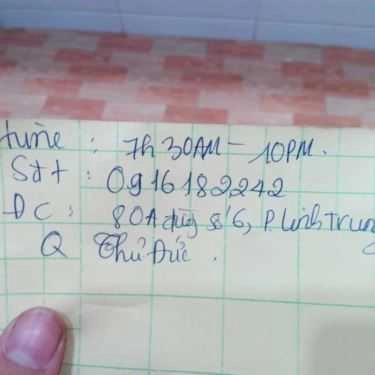 time : 7h30AM - 10PM.
Sđt : 0916182242
ĐC : 80A đường số 6, P Linh Trung
Q Thủ Đức .